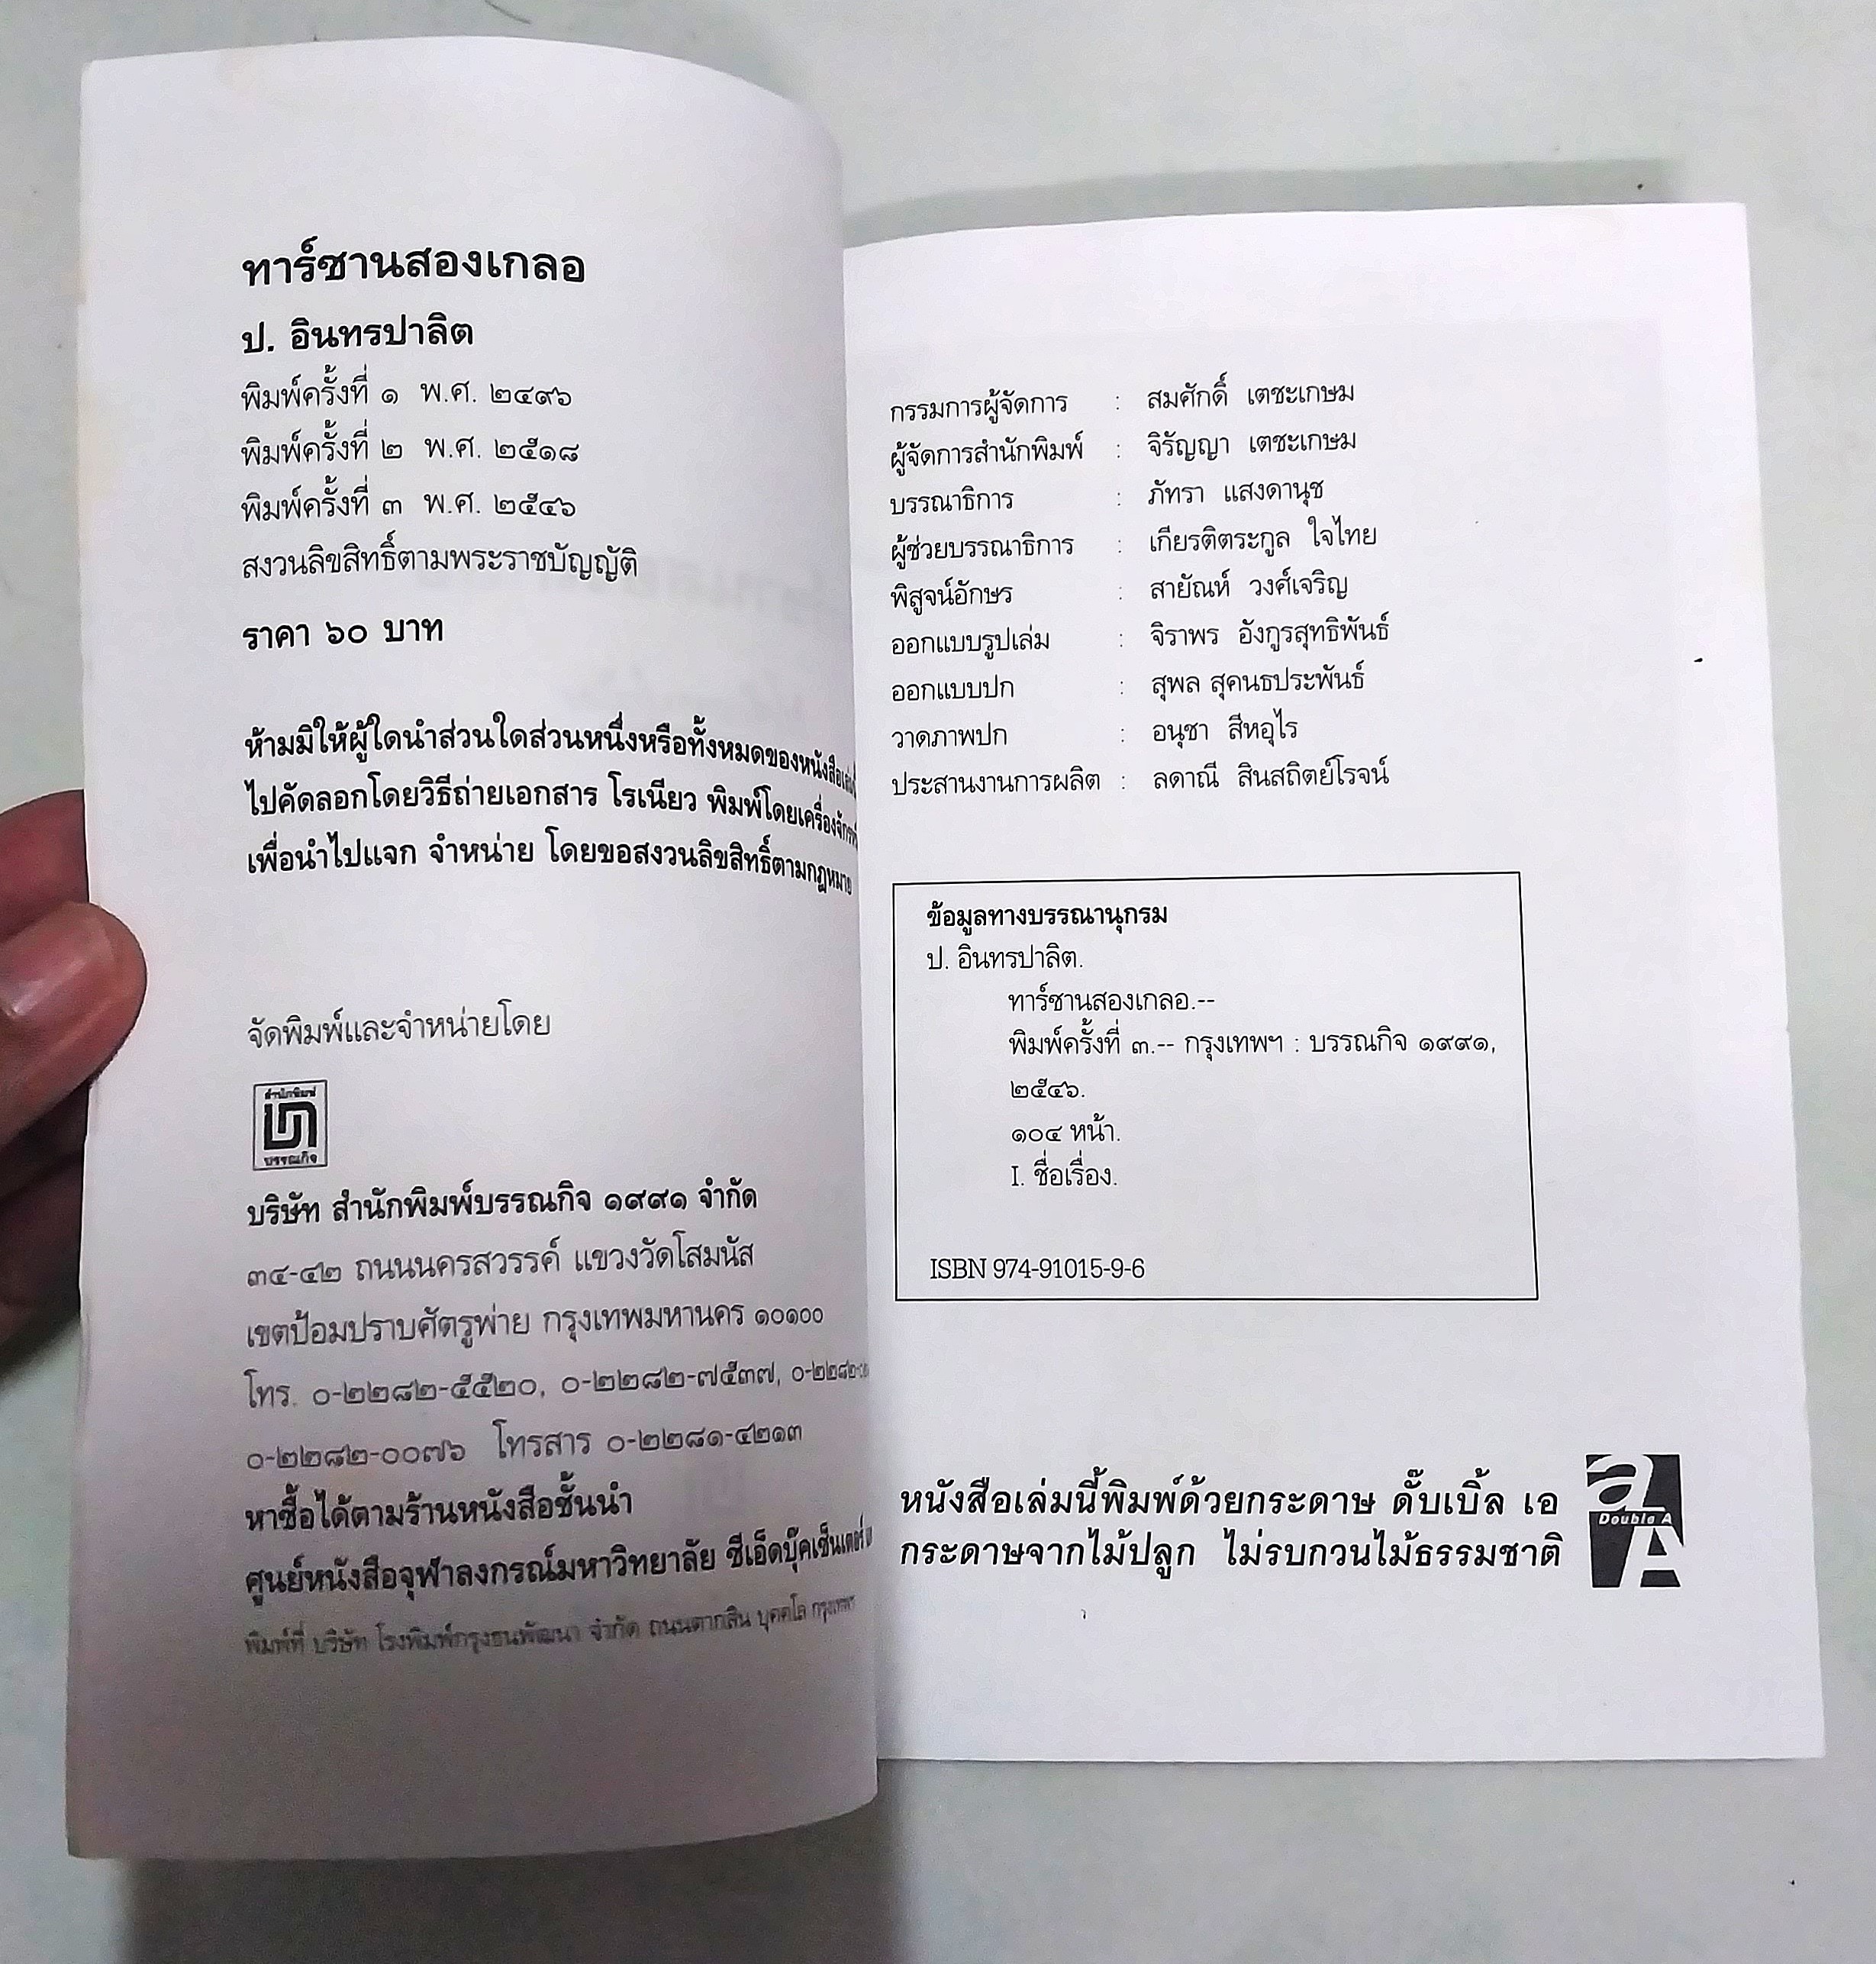 ทาร์ซานสองเกลอ
ป. อินทรปาลิต
พิมพ์ครั้งที่ ๑ พ.ศ. ๒๔๙๖
พิมพ์ครั้งที่ ๒ พ.ศ. ๒๕๑๘
พิมพ์ครั้งที่ ๓ พ.ศ. ๒๕๔๖
สงวนลิขสิทธิ์ตามพระราชบัญญัติ
ราคา ๖๐ บาท
ห้ามมิให้ผู้ใดนำส่วนใดส่วนหนึ่งหรือทั้งหมดของหนังสือเล่มนี้
ไปคัดลอกโดยวิธีถ่ายเอกสาร โรเนียว พิมพ์โดยเครื่องจักร
เพื่อนำไปแจก จำหน่าย โดยขอสงวนลิขสิทธิ์ตามกฎหมาย
จัดพิมพ์และจำหน่ายโดย
สำนักพิมพ์
บรรณกิจ
บริษัท สำนักพิมพ์บรรณกิจ ๑๙๙๑ จำกัด
๓๔-๔๒ ถนนนครสวรรค์ แขวงวัดโสมนัส
เขตป้อมปราบศัตรูพ่าย กรุงเทพมหานคร ๑๐๑๐๐
โทร. ๐-๒๒๘๒-๕๕๒๐, ๐-๒๒๘๒-๗๕๓๗,
๐-๒๒๘๒-๐๐๗๖ โทรสาร ๐-๒๒๘๑-๔๒๑๓
หาซื้อได้ตามร้านหนังสือชั้นนำ
ศูนย์หนังสือจุฬาลงกรณ์มหาวิทยาลัย ซีเอ็ดบุ๊คเซ็นเตอร์
พิมพ์ที่ บริษัท โรงพิมพ์กรุงธนพัฒนา จำกัด ถนนตากสิน บุคคโล กรุงเทพฯ
กรรมการผู้จัดการ : สมศักดิ์ เตชะเกษม
ผู้จัดการสำนักพิมพ์ : จิรัญญา เตชะเกษม
บรรณาธิการ : ภัทรา แสงดานุช
ผู้ช่วยบรรณาธิการ : เกียรติตระกูล ใจไทย
พิสูจน์อักษร : สายัณห์ วงศ์เจริญ
ออกแบบรูปเล่ม : จิราพร อังกูรสุทธิพันธ์
ออกแบบปก : สุพล สุคนธประพันธ์
วาดภาพปก : อนุชา สีหอุไร
ประสานงานการผลิต : ลดาณี สินสถิตย์โรจน์
ข้อมูลทางบรรณานุกรม
ป. อินทรปาลิต.
ทาร์ซานสองเกลอ.--
พิมพ์ครั้งที่ ๓.-- กรุงเทพฯ : บรรณกิจ ๑๙๙๑,
๒๕๔๖.
๑๐๔ หน้า.
I. ชื่อเรื่อง.
ISBN 974-91015-9-6
หนังสือเล่มนี้พิมพ์ด้วยกระดาษ ดั๊บเบิ้ล เอ
กระดาษจากไม้ปลูก ไม่รบกวนไม้ธรรมชาติ
Double A